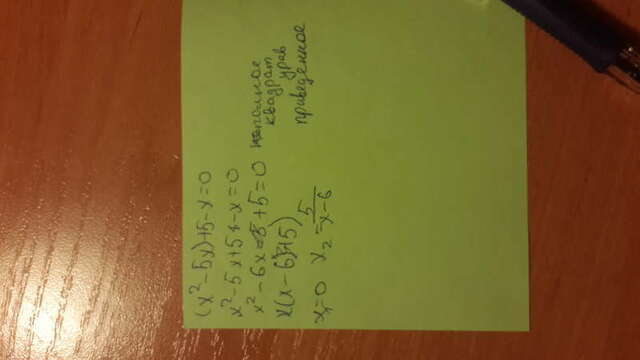 (x²-5x)+5-x=0
x²-5x+5-x=0
x²-6x+5=0
x(x-6)+5)
x₁=0 x₂=5/x-6
полное
квадрат
урав
приведенное